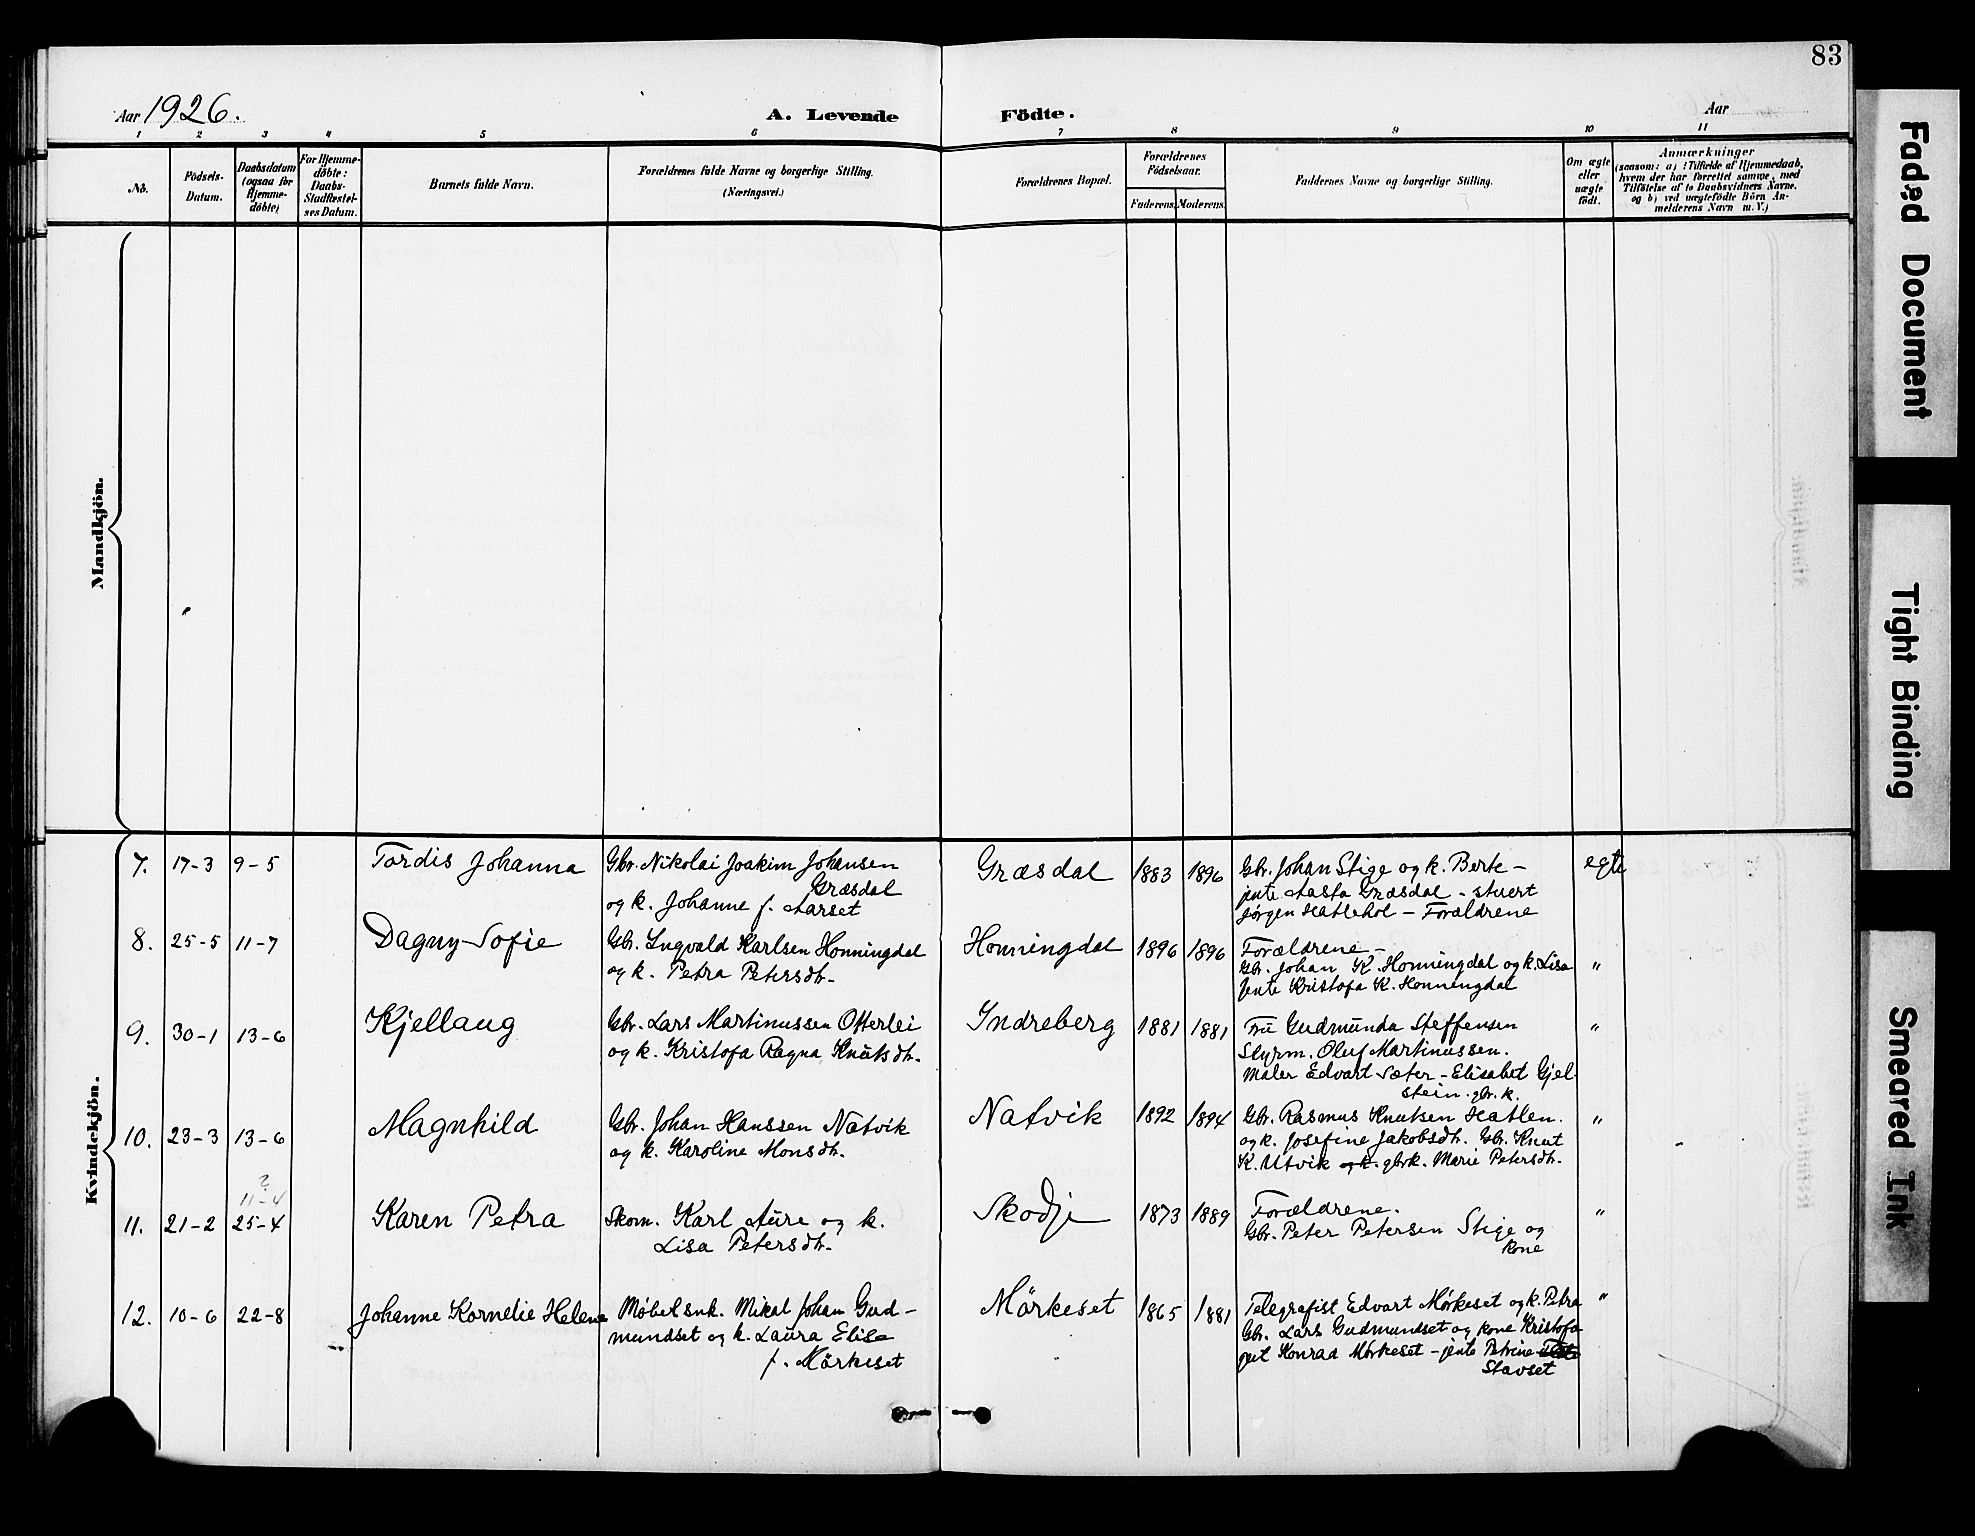 83
Aar 1926.
A. Levende Födte.
Aar
1 2 3 4 5 6 7 8 9 10 11
No.
Födsels-
Datum.
Daabsdatum
(ogsaa for
Hjemme-
döbte)
For Hjemme-
döbte:
Daabs-
Stadfæstel-
ses Datum.
Barnets fulde Navn.
Forældrenes fulde Navne og borgerlige Stilling.
(Næringsvei.)
Forældrenes Bopæl.
Forældrenes
Födselsaar.
Faderens. Moderens.
Faddernes Navne og borgerlige Stilling.
Om ægte
eller
uægte
födt.
Anmærkninger
(saasom: a) i Tilfælde af Hjemmedaab,
hvem der har forrettet samme, med
Tilföielse af to Daabsvidners Navne.
og b) ved uægtefödte Börn An-
melderens Navn m. V.)
Mandkjön.
Kvindekjön.
7. 17-3 9-5
Tordis Johanna
Gbr. Nikolai Joakim Johansen
Græsdal
og k. Johanne f. Aarset
Græsdal
1883 1896
Gbr. Johan Stige og k. Berte -
jente Aasta Græsdal -
Jørgen Hatlehol - Forældrene
egte
8. 25-5 11-7
Dagny Sofie
Gbr. Ingvald Karlsen Honningdal
og k. Petra Petersdtr.
Honningdal
1896 1896
Forældrene -
Gbr. Johan K. Honningdal og k. Lisa
Jente Kristofa K. Honningdal
"
9. 30-1 13-6
Kjellaug
Gbr. Lars Martinussen Otterlei
og k. Kristofa Ragna Knutsdtr.
Indreberg
1881 1881
Fru Gudmunda Steffensen
Styrm. Oluf Martinussen.
Maler Edvart Sæter - Elisabet Gjel-
stein. gbr. k.
"
10. 23-3 13-6
Magnhild
Gbr. Johan Hanssen Natvik
og k. Karoline Monsdtr.
Natvik
1892 1894
Gbr. Rasmus Knutsen Hatlen.
og k. Josefine Jakobsdtr. Gbr. Knut
K. Utvik og k. gbrk. Marie Petersdtr.
"
?
11-4
11. 21-2 25-4
Karen Petra
Skom. Karl Aure og k.
Lisa Petersdtr.
Skodje
1873 1889
Forældrene.
Gbr. Peter Petersen Stige og
kone
"
12. 10-6 22-8
Johanne Kornelie Helene
Møbelsnk. Mikal Johan Gud-
mundset og k. Laura Elise
f. Mörkeset
Mörkeset
1865 1881
Telegrafist Edvart Mørkeset og k. Petra
Gbr. Lars Gudmundset og kone Kristofa
gut Konrad Mørkeset - jente Petrine
Stavset
"
Faded Document
Tight Binding
Smeared Ink